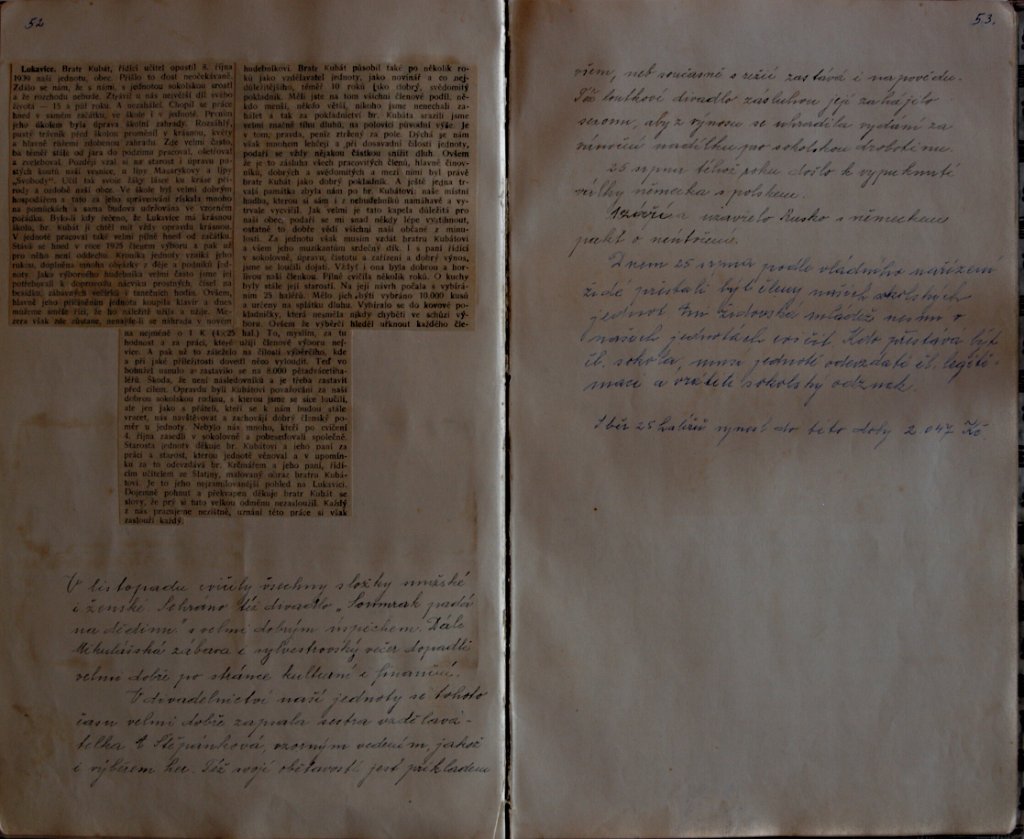 52
Lukavice. Bratr Kubát, řídící učitel opustil 8. října
1939 naši jednotu, obec. Přišlo to dost neočekávaně.
Zdálo se nám, že s námi, s jednotou sokolskou srostl
a že rozchodu nebude. Ztrávil u nás největší díl svého
života — 15 a půl roku. A nezahálel. Chopil se práce
hned v samém začátku, ve škole i v jednotě. Prvním
jeho úkolem byla úprava školní zahrady. Rozsáhlý,
pustý trávník před školou proměnil v krásnou, květy
a hlavně růžemi zdobenou zahradu. Zde velmi často,
ba téměř stále od jara do podzimu pracoval, ošetřoval
a zveleboval. Později vzal si na starost i úpravu po-
stých koutů naší vesnice, u lípy Masarykovy a lípy
„Svobody". Učil tak svoje žáky lásce ku kráse pří-
rody a ozdobě naší obce. Ve škole byl velmi dobrým
hospodářem a tato za jeho spravování získala mnoho
na pomůckách a sama budova udržována ve vzorném
pořádku. Bylo-li kdy řečeno, že Lukavice má krásnou
školu, br. Kubát ji chtěl mít vždy opravdu krásnou.
V jednotě pracoval také velmi pilně hned od začátku.
Stává se hned v roce 1925 členem výboru a pak už
pro něho není oddechu. Kronika jednoty vzniká jeho
rukou, doplněna mnoha obrázky z dějů a podniků jednoty.
Jako výborného hudebníka velmi často jsme jej
potřebovali k doprovodu nácviku prostných, čísel na
besídku, zábavných večírků i tanečních hodin. Ovšem,
hlavně jeho přičiněním jednota koupila klavír a dnes
můžeme směle říci, že ho náležitě užila a užije. Me-
zera však zde zůstane, nenajde-li se náhrady v novém
hudebníkovi. Bratr Kubát působil také po několik ro-
ků jako vzdělavatel jednoty, jako novinář a co nej-
důležitějšího, téměř 10 roků jako dobrý, svědomitý
pokladník. Měli jste na tom všichni členové podíl, ně-
kdo menší, někdo větší, nikoho jsme nenechali za-
hálet a tak za pokladnictví br. Kubáta srazili jsme
velmi značně tíhu dluhů, na polovic původní výše. Je
v tom, pravda, peníz ztržený za pole. Dýchá se nám
však mnohem lehčeji a při dosavadní čilosti jednoty,
podaří se vždy nějakou částkou snížit dluh. Ovšem
že je to zásluha všech pracovitých členů, hlavně činov-
níků, dobrých a svědomitých a mezi nimi byl právě
bratr Kubát jako dobrý pokladník. A ještě jedna tr-
valá památka zbyla nám po br. Kubátovi: naše místní
hudba, kterou si sám i z nehudebníků namáhavě a vy-
trvale vycvičil. Jak velmi je tato kapela důležitá pro
naši obec, podaří se mi snad někdy lépe vystihnout,
ostatně to dobře vědí všichni naši občané z minu-
losti. Za jednotu však musím vzdát bratru Kubátovi
a všem jeho muzikantům srdečný dík. I s paní řídící
v sokolovně, úpravu, čistotu a zařízení a dobrý výnos,
jsme se loučili dojati. Vždyť i ona byla dobrou a hor-
livou naší členkou. Pilně cvičila několik roků. O kuchyň
byly stálé její starosti. Na její návrh počala s vybírá-
ním 25 haléřů. Mělo jich býti vybráno 10.000 kusů
a určeny na splátku dluhu. Vybíralo se do kovové po-
kladničky, která nesměla nikdy chyběti ve schůzi vý-
boru. Ovšem že výběrčí hleděl uřknout každého čle-
na nejméně o 1 K (4×25 hal.) To, myslím, za tu
hodnost a za práci, které užijí členové výboru nej-
více. A pak už to záleželo na čilosti výběrčího, kde
a při jaké příležitosti dovedl něco vyloudit. Teď vo
bohužel usnulo a zastavilo se na 8.000 pětadvacítiha-
léřů. Škoda, že není následovníků a je třeba zastavit
před cílem. Opravdu byli Kubátovi považováni za naši
dobrou sokolskou rodinu, s kterou jsme se sice loučili,
ale jen jako s přáteli, kteří se k nám budou stále
vracet, nás navštěvovat a zachovají dobrý členský po-
měr v jednoty. Nebylo nás mnoho, kteří po cvičení
4. října zasedli v sokolovně a pobesedovali společně.
Starosta jednoty děkuje br. Kubátovi a jeho paní za
práci a starost, kterou jednotě věnoval a v upomín-
ku za to odevzdává br. Krčmářem a jeho paní, řídí-
cím učitelem ze Slatiny, malovaný obraz bratru Kubá-
tovi. Je to jeho nejzamilovanější pohled na Lukavici.
Dojemně pohnut a překvapen děkuje bratr Kubát se
slovy, že prý si tuto velkou odměnu nezasloužil. Každý
z nás pracujeme nezištně, uznání této práce si však
zaslouží každý.
V listopadu cvičily všechny složky mužské
i ženské. Sehráno též divadlo „Soumrak padá
na dědinu" s velmi dobrým úspěchem. Dále
Mikulášská zábava i sylvestrovský večer dopadli
velmi dobře po stránce kulturní i finanční.
V divadelnictví naší jednoty se tohoto
času velmi dobře zapsala sestra vzdělava-
telka A Štěpánková, vzorným vedením, jakož
i výběrem her. Též svojí obětavostí jest příkladem
53.
všem, neb současně s režií zastává i nápovědu.
Též loutkové divadlo zásluhou její zahájelo
sezonu, aby z výnosu se uhradila vydání za
vánoční nadílku pro sokolskou drobotinu.
25 srpna téhož roku došlo k vypuknutí
války německa s polskem.
1 září a uzavřelo Rusko s německem
pakt o neútočení.
Dnem 25 srpna podle vládního nařízení
židé přestali býti členy našich sokolských
jednot. Ani židovská mládež nesmí v
našich jednotách cvičit. Kdo přestává být
čl. sokola, musí jednotě odevzdati čl. legiti-
maci a vrátiti sokolský odznak.
Sběr 25 haléřů vynesl do této doby 2 047 Kč